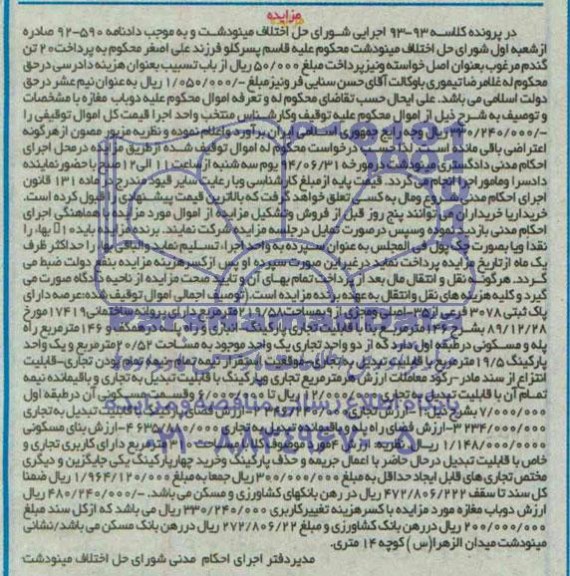 مزایده
در پرونده کلاسه ۹۳-۹۳ اجرایی شورای حل اختلاف مینودشت و به موجب دادنامه ۵۹۰-۹۲ صادره
از شعبه اول شورای حل اختلاف مینودشت محکوم علیه قاسم پسرکلو فرزند علی اصغر محکوم به پرداخت ۲۰ تن
گندم مرغوب بعنوان اصل خواسته و نیز پرداخت مبلغ ۵۰/۰۰۰ ریال از باب تسبیب بعنوان هزینه دادرسی در حق
محکوم له غلامرضا تیموری با وکالت آقای حسن سنایی فر و نیز مبلغ -/۱/۰۵۰/۰۰۰ ریال به عنوان نیم عشر در حق
دولت اسلامی می باشد. علی ایحال حسب تقاضای محکوم له و تعرفه اموال محکوم علیه دوباب مغازه با مشخصات
و توصیف به شرح ذیل از اموال محکوم علیه توقیف و کارشناس منتخب واحد اجرا قیمت کل اموال توقیفی را
۳۳۰/۲۴۰/۰۰۰/- ریال وجه رایج جمهوری اسلامی ایران برآورد و اعلام نموده و نظریه مزبور مصون از هرگونه
اعتراضی باقی مانده است. لذا حسب درخواست محکوم له اموال توقیف شده از طریق مزایده در محل اجرای
احکام مدنی دادگستری مینودشت در مورخه ۹۴/۰۶/۳۱ یوم سه شنبه از ساعت ۱۱ الی ۱۲ صبح با حضور نماینده
دادسرا و مامور اجرا انجام می گردد. قیمت پایه از مبلغ کارشناسی و با رعایت سایر قیود مندرج در ماده ۱۳۱ قانون
اجرای احکام مدنی شروع و مال به کسی تعلق خواهد گرفت که بالاترین قیمت پیشنهادی را قبول کرده است.
خریدار یا خریداران می توانند پنج روز قبل از فروش و تشکیل مزایده از اموال مورد مزایده با هماهنگی اجرای
احکام مدنی بازدید نموده و سپس در صورت تمایل در جلسه مزایده شرکت نمایند. برنده مزایده باید ۱۰٪ بها، را
نقدا و یا بصورت چک پول فی المجلس به عنوان سپرده به واحد اجرا، تسلیم نماید. الباقی بها، را حداکثر ظرف
یک ماه از تاریخ مزایده پرداخت نماید در غیر این صورت سپرده او پس از کسر هزینه مزایده بنفع دولت ضبط می
گردد. هرگونه نقل و انتقال مال بعد از پرداخت تمام بهای آن و تایید صحت مزایده از ناحیه دادگاه صورت می
گیرد و کلیه هزینه های نقل و انتقال به عهده برنده مزایده است. (توصیف اجمالی اموال توقیف شده: عرصه دارای
پاک ثبتی ۳۰۷۸ فرعی از ۳۵-اصلی و مجزی از ۹ بمساحت ۲۱۹/۵۸ مترمربع دارای پروانه ساختمانی ۱۷۴۱۹ مورخ
۸۹/۱۲/۲۸ بشرح ۱۴۶ مترمربع بنا با قابلیت تجاری پارکینگ، انباری و راه پله در همکف و ۱۴۶ مترمربع راه
پله و مسکونی در طبقه اول دارد که از دو واحد تجاری یک واحد موجود به مساحت ۲۰/۵۲ مترمربع و یک واحد
پارکینگ ۱۹/۵ مترمربع با قابلیت تبدیل به تجاری-موقعیت استقرار نیمه تمام و نیمه تمام بودن تجاری-قابلیت
انتزاع از سند مادر-رکود معاملات ارزش هر مترمربع تجاری و پارکینگ با قابلیت تبدیل به تجاری و باقیمانده نیمه
خاص با قابلیت تبدیل در حال حاضر با اعمال جریمه و حذف پارکینگ و خرید چهار پارکینگ یکی جایگزین و دیگری
مختص تجاری های قابل ایجاد حداقل به مبلغ ۳۰۰/۰۰۰/۰۰۰ ریال جمعا به مبلغ ۱/۹۶۴/۱۲۰/۰۰۰ ریال ضمنا
کل سند تا سقف ۴۷۲/۸۰۶/۲۲۲ ریال در رهن بانکهای کشاورزی و مسکن می باشد. -/۴۸۰/۲۴۰/۰۰۰ ریال
ارزش دوباب مغازه مورد مزایده با کسر هزینه تغییر کاربری ۳۳۰/۲۴۰/۰۰۰ ریال می باشد که از کل سند مبلغ
۲۰۰/۰۰۰/۰۰۰ ریال در رهن بانک کشاورزی و مبلغ ۲۷۲/۸۰۶/۲۲ ریال در رهن بانک مسکن می باشد/نشانی
مینودشت میدان الزهرا(س) کوچه ۱۴ متری.
مدیر دفتر اجرای احکام مدنی شورای حل اختلاف مینودشت